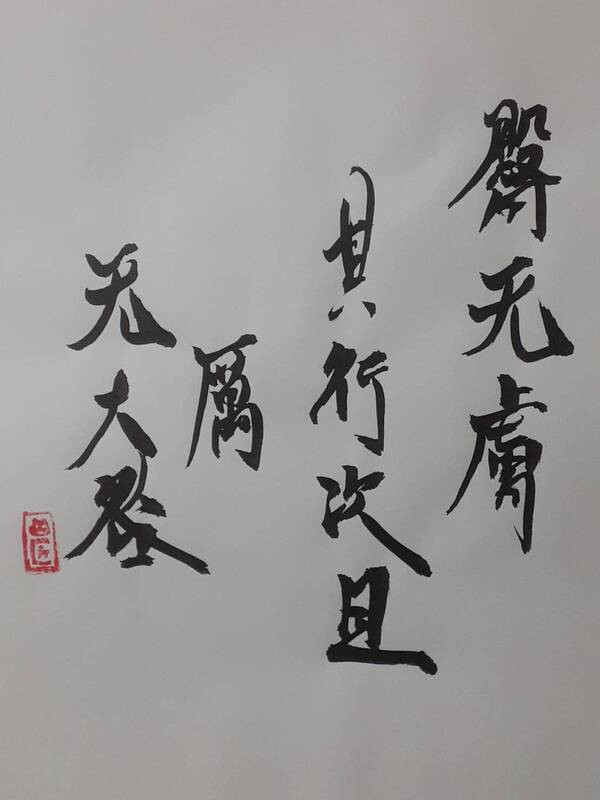 臀无膚
其行次且
厲
无大咎